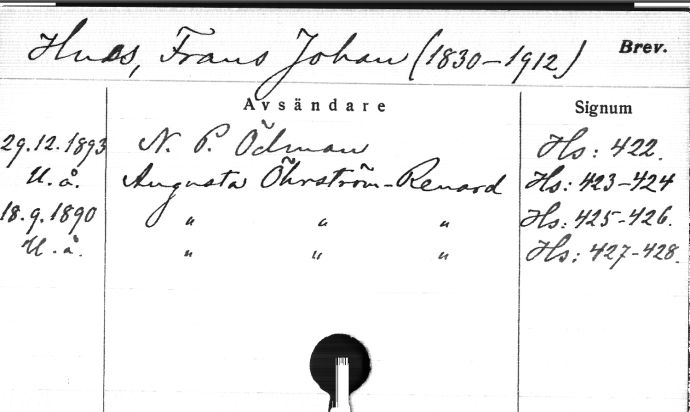 Huss, Frans Johan (1830-1912) Brev.
Avsändare Signum
29.12.1893 N. P. Ödman Hs: 422.
U.å. Augusta Öhrström-Renard Hs: 423-424
18.9.1890 " " " Hs: 425-426.
U.å. " " " Hs: 427-428.